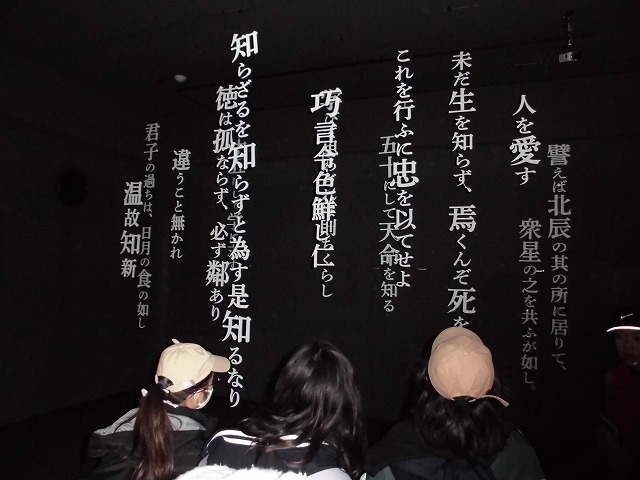 譬えば北辰の其の所に居りて、
衆星の之を共ふが如し。
人を愛す
未だ生を知らず、焉くんぞ死を
これを行ふに忠を以てせよ
五十にして天命を知る
巧言令色鮮し仁
くらし
知らざるを知らずと為す是知るなり
徳は孤ならず、必ず鄰あり
違うこと無かれ
君子の過ちは、日月の食の如し
温故知新